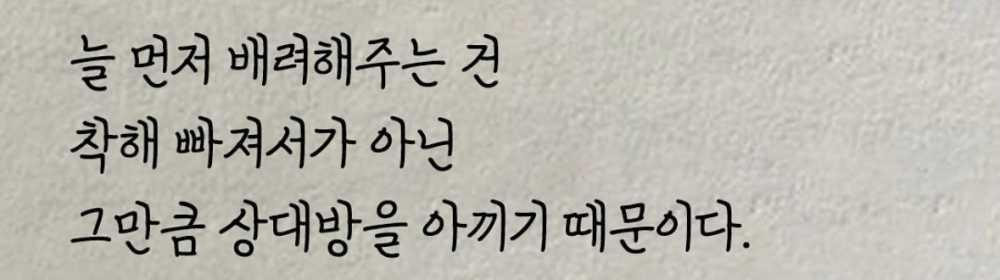 늘 먼저 배려해주는 건
착해 빠져서가 아닌
그만큼 상대방을 아끼기 때문이다.